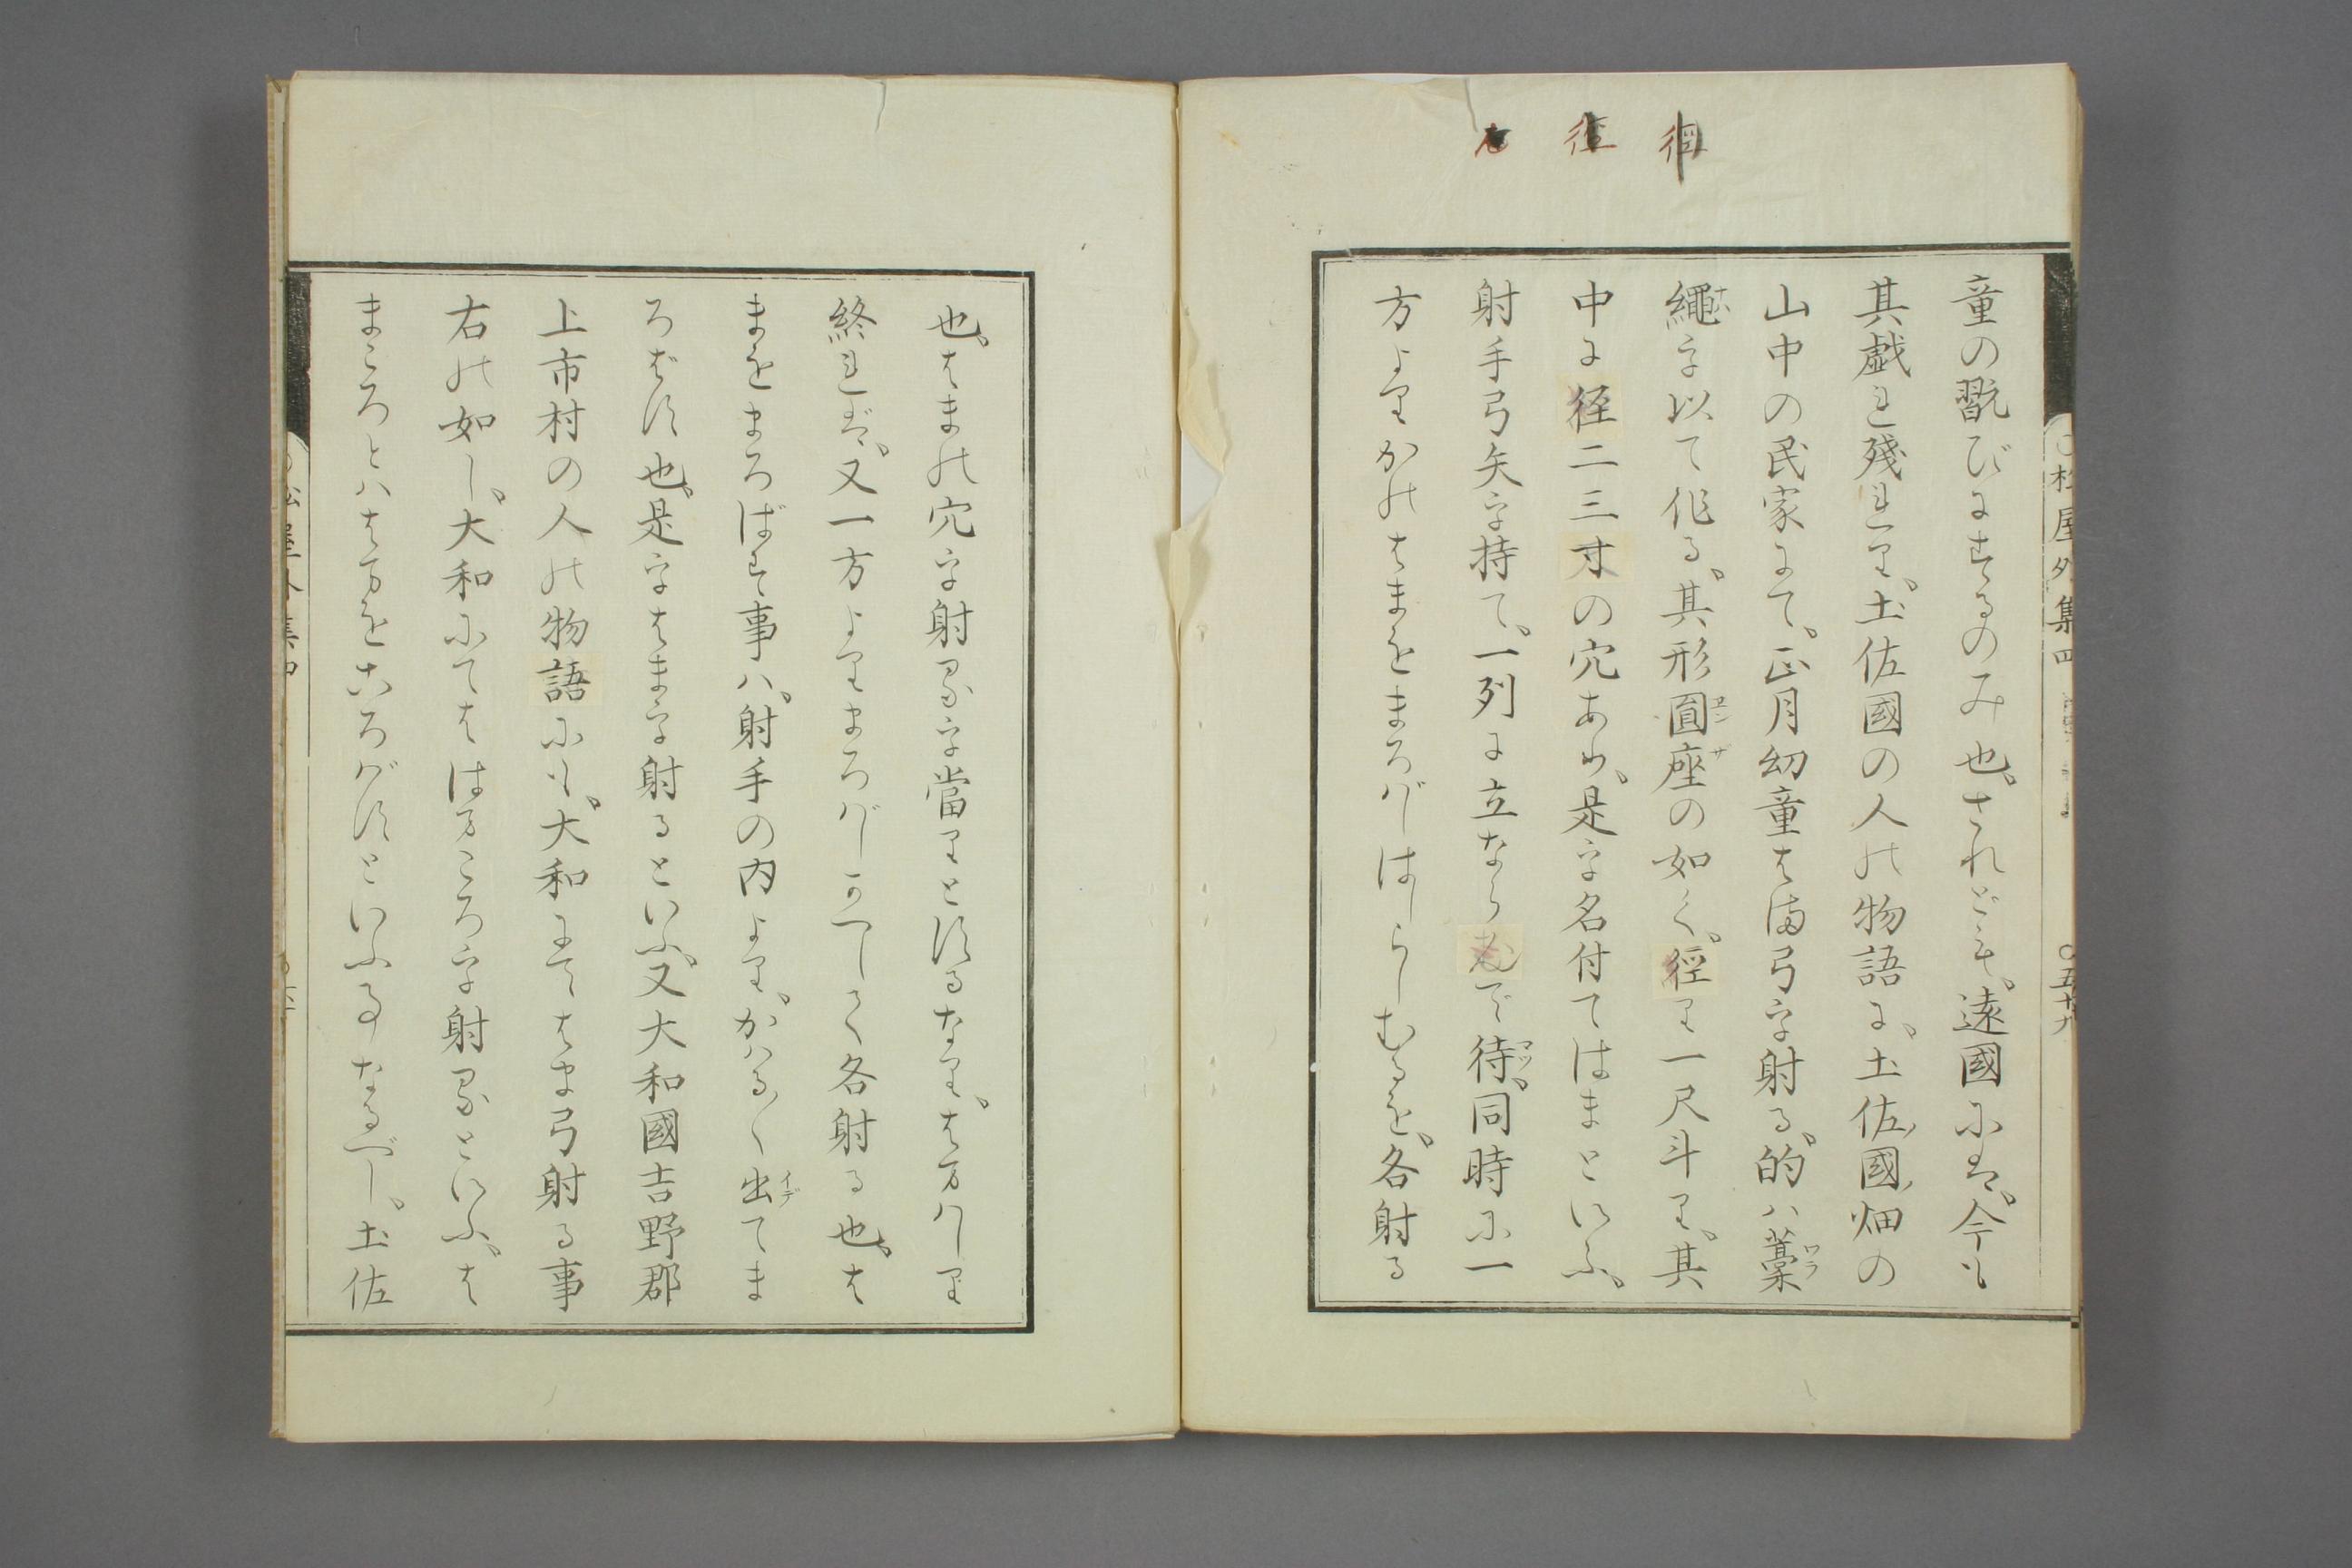 童の翫びにするのみ也、されども、遠國にハ、今も
其戯れ殘れり、土佐國の人の物語に、土佐ノ國ノ畑の
山中の民家にて、正月幼童はま弓を射る、的ハ藁
繩を以て作る、其形圓座の如く、徑り一尺斗り、其
中に径二三寸の穴あり、是を名付てはまといふ、
射手弓矢を持て、一列に立ならむで待、同時に一
方よりかのはまをまろばしはしらしむるを、各射る
也、はまの穴を射るを當りとするなり、はまはしり
終れバ、又一方よりまろばしかへしく各射る也、は
まをまろばす事ハ、射手の内より、かハる〱出てま
ろばす也、是をはまを射るといふ、又大和國吉野郡
上市村の人の物語にも、大和にてはま弓射る事
右の如し、大和にてははまころを射るといふ、は
まころとハはまをころばすといふ事なるべし、土佐